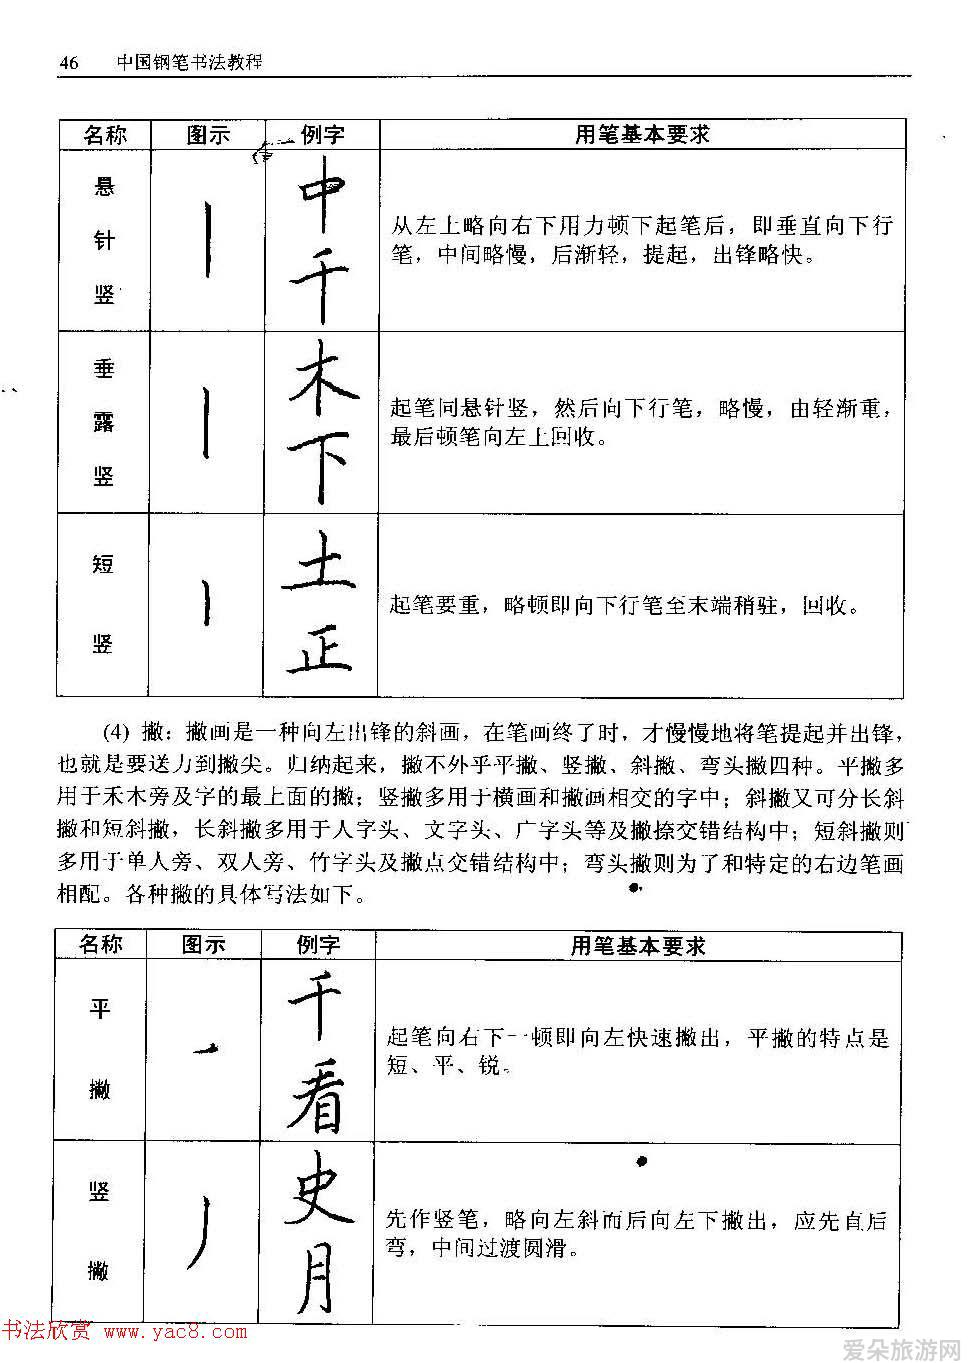 46 中国钢笔书法教程
名称 图示 例字 用笔基本要求
悬针竖 中千 从左上略向右下用力顿下起笔后，即垂直向下行
笔，中间略慢，后渐轻，提起，出锋略快。
垂露竖 木下 起笔同悬针竖，然后向下行笔，略慢，由轻渐重，
最后顿笔向左上回收。
短竖 土正 起笔要重，略顿即向下行笔至末端稍驻，回收。
(4) 撇：撇画是一种向左出锋的斜画，在笔画终了时，才慢慢地将笔提起并出锋，
也就是要送力到撇尖。归纳起来，撇不外乎平撇、竖撇、斜撇、弯头撇四种。平撇多
用于禾木旁及字的最上面的撇；竖撇多用于横画和撇画相交的字中；斜撇又可分长斜
撇和短斜撇，长斜撇多用于人字头、文字头、广字头等及撇捺交错结构中；短斜撇则
多用于单人旁、双人旁、竹字头及撇点交错结构中；弯头撇则为了和特定的右边笔画
相配。各种撇的具体写法如下。
名称 图示 例字 用笔基本要求
平撇 千看 起笔向右下一顿即向左快速撇出，平撇的特点是
短、平、锐。
竖撇 史月 先作竖笔，略向左斜而后向左下撇出，应先直后
弯，中间过渡圆滑。
书法欣赏 www.yac8.com
爱朵旅游网